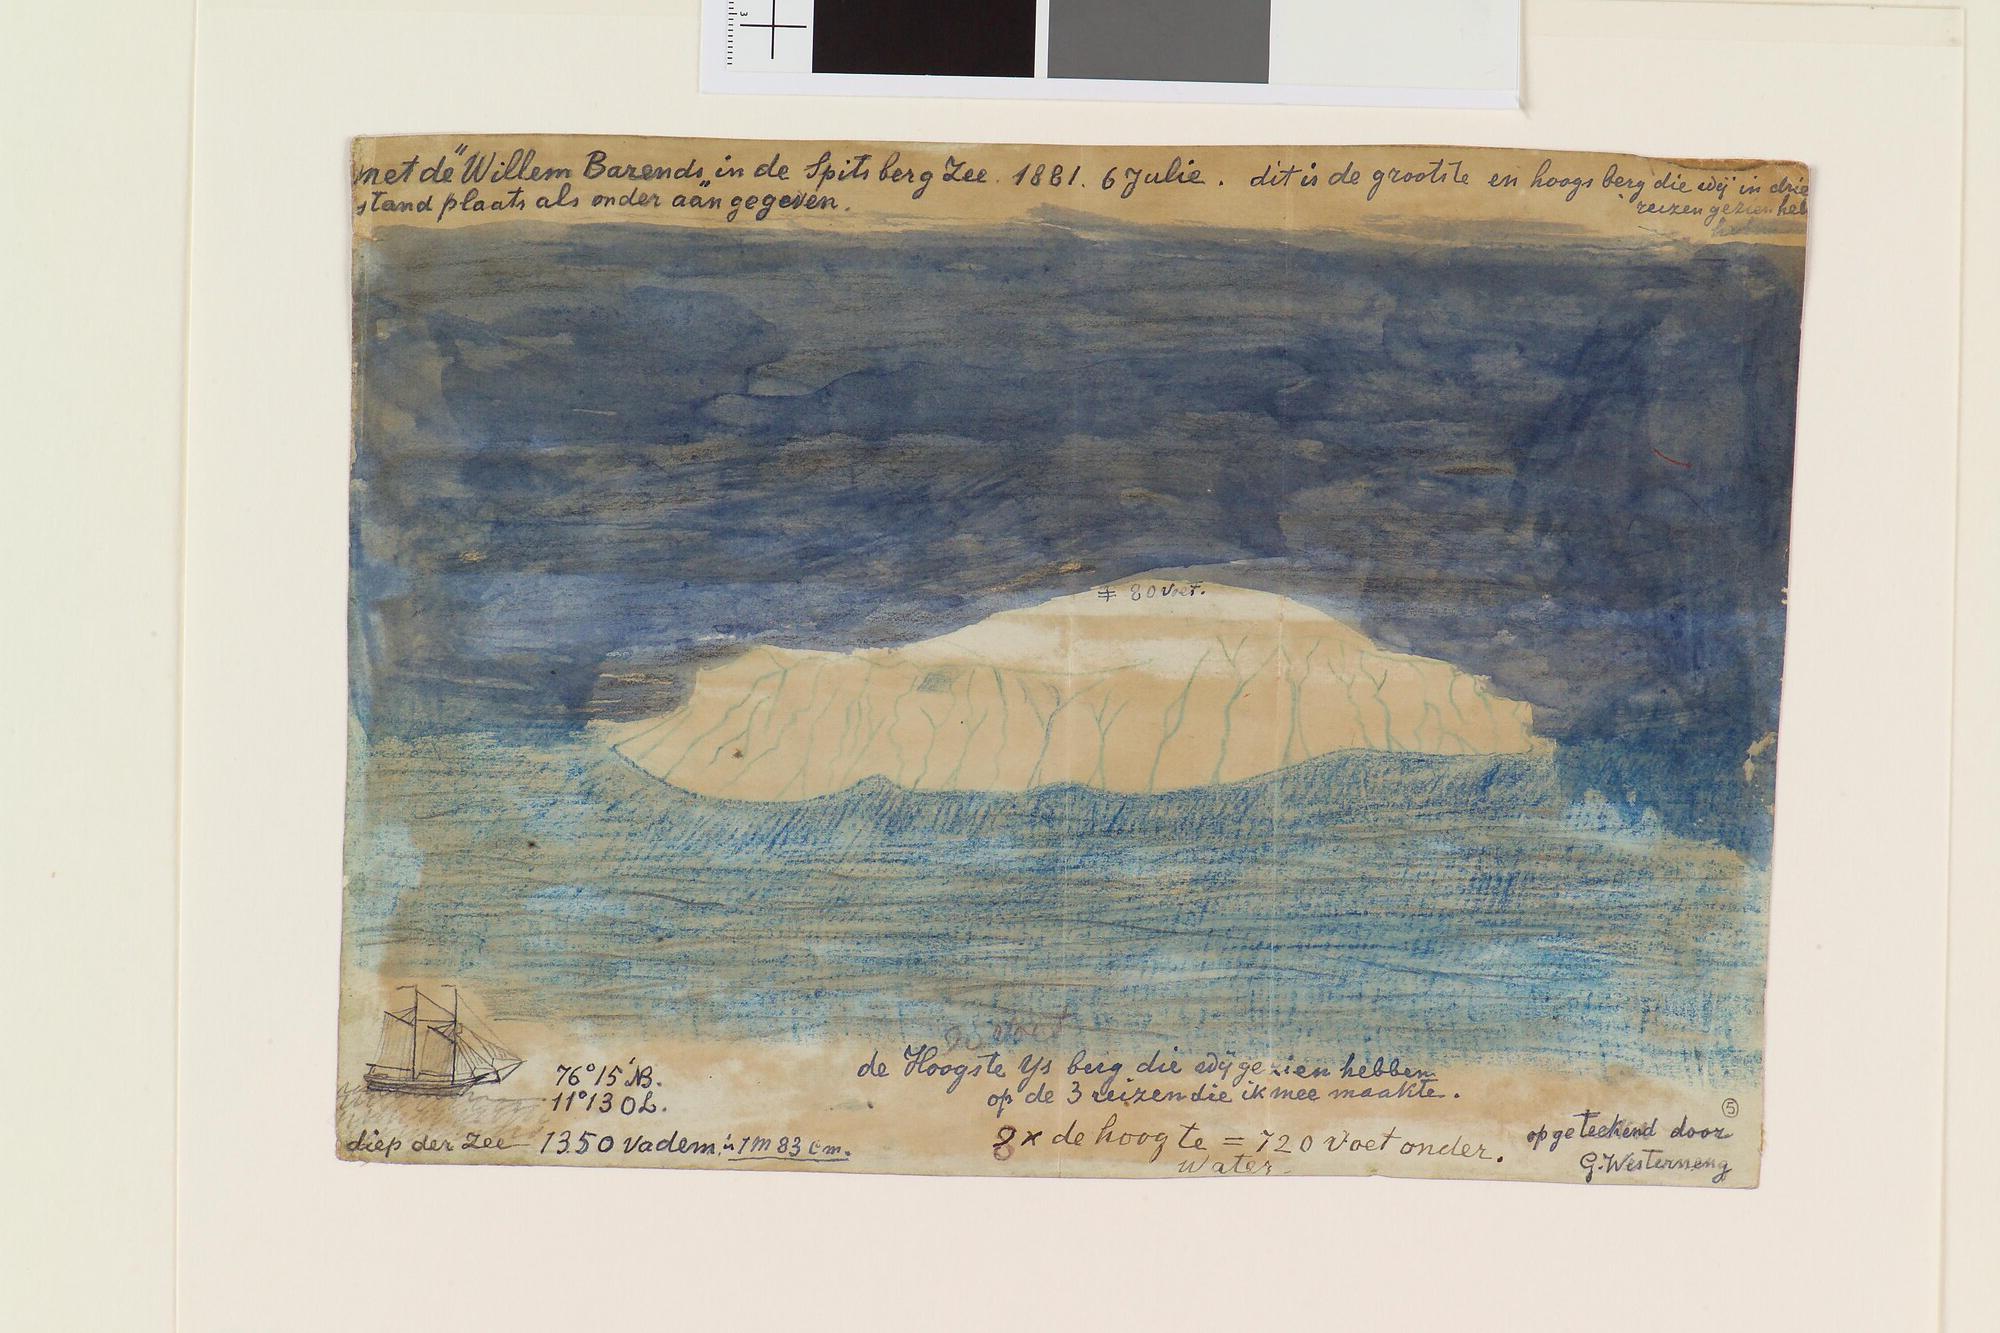 met de "Willem Barends" in de Spitsberg Zee. 1881. 6 Julie. dit is de grootste en hoogs berg die wij in drie
reizen gezien heb
stand plaats als onder aangegeven.
80 voet.
76° 15' NB.
11° 13 OL.
diep der Zee 1350 vadem. à 1 m 83 cm.
de Hoogste Ys berg die wij gezien hebben
op de 3 reizen die ik mee maakte.
8 x de hoogte = 720 voet onder.
water.
5
opgeteekend door
G. Westerneng